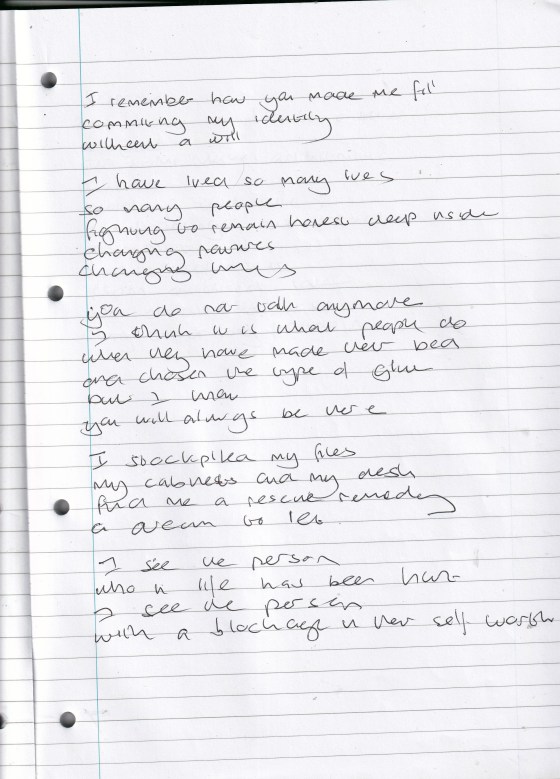 I remember how you made me fill
commiting my identity
without a will
I have lived so many lives
so many people
fighting to remain honest deep inside
changing
changing
you do not talk anymore
I think it is what people do
when they have made their bed
and chosen the type of glue
but I know
you will always be here
I stockpiled my files
my cabinets and my desk
find me a rescue remedy
a dream to let
I see the person
who in life has been hurt
I see the person
with a blockage in her self worth